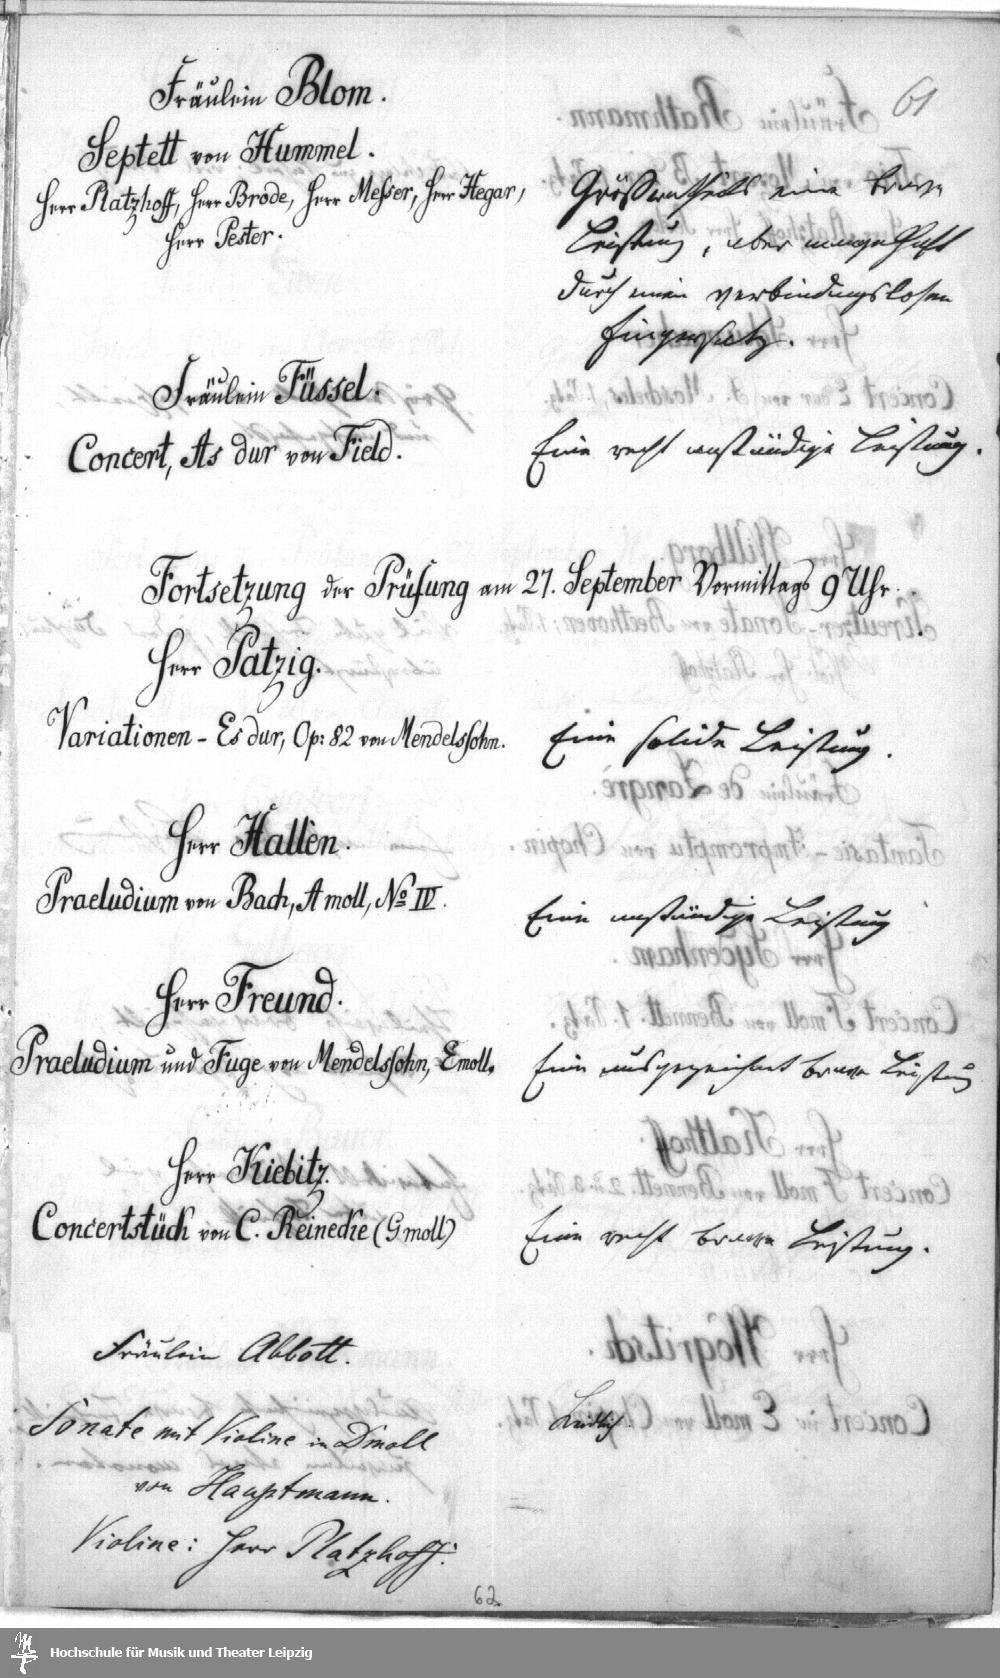 61
Fräulein Blom.
Septett von Hummel.
Herr Platzhoff, Herr Brode, Herr Messer, Herr Hegar,
Herr Pester.
Größentheils eine brave
Leistung, aber mangelhaft
durch einen verbindungslosen
Fingersatz.
Fräulein Füssel.
Concert, As dur von Field.
Eine recht anständige Leistung.
Fortsetzung der Prüfung am 27. September Vormittags 9 Uhr.
Herr Patzig.
Variationen - Es dur, Op: 82 von Mendelssohn.
Eine solide Leistung.
Herr Hallèn.
Praeludium von Bach, A moll, No IV.
Eine anständige Leistung
Herr Freund.
Praeludium und Fuge von Mendelssohn, E moll.
Eine ausgezeichnet brave Leistung
Herr Kiebitz.
Concertstück von C. Reinecke (G moll)
Eine recht brave Leistung.
Fräulein Abbott.
Sonate mit Violine in D moll
von Hauptmann.
Violine: Herr Platzhoff.
Leidlich.
62.
Hochschule für Musik und Theater Leipzig